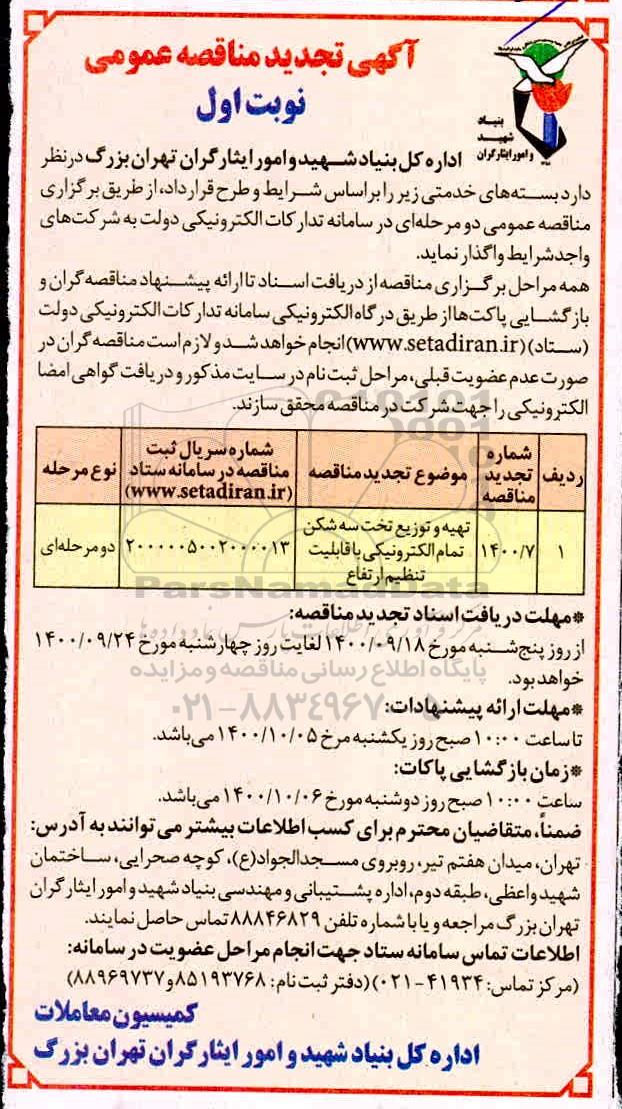 آگهی تجدید مناقصه عمومی
نوبت اول
بنیاد
شهید
و امور ایثارگران
اداره کل بنیاد شهید و امور ایثارگران تهران بزرگ در نظر
دارد بسته‌های خدمتی زیر را براساس شرایط و طرح قرارداد، از طریق برگزاری
مناقصه عمومی دو مرحله‌ای در سامانه تدارکات الکترونیکی دولت به شرکت‌های
واجد شرایط واگذار نماید.
همه مراحل برگزاری مناقصه از دریافت اسناد تا ارائه پیشنهاد مناقصه‌گران و
بازگشایی پاکت‌ها از طریق درگاه الکترونیکی سامانه تدارکات الکترونیکی دولت
(ستاد) (www.setadiran.ir) انجام خواهد شد و لازم است مناقصه‌گران در
صورت عدم عضویت قبلی، مراحل ثبت نام در سایت مذکور و دریافت گواهی امضا
الکترونیکی را جهت شرکت در مناقصه محقق سازند.
ردیف | شماره تجدید مناقصه | موضوع تجدید مناقصه | شماره سریال ثبت مناقصه در سامانه ستاد (www.setadiran.ir) | نوع مرحله
۱ | ۱۴۰۰/۷ | تهیه و توزیع تخت سه شکن تمام الکترونیکی با قابلیت تنظیم ارتفاع | ۲۰۰۰۰۰۵۰۰۲۰۰۰۰۱۳ | دو مرحله‌ای
ParsNamadData
پایگاه اطلاع رسانی مناقصه و مزایده
*مهلت دریافت اسناد تجدید مناقصه:
از روز پنج‌شنبه مورخ ۱۴۰۰/۰۹/۱۸ لغایت روز چهارشنبه مورخ ۱۴۰۰/۰۹/۲۴
خواهد بود.
*مهلت ارائه پیشنهادات:
تا ساعت ۱۰:۰۰ صبح روز یکشنبه مرخ ۱۴۰۰/۱۰/۰۵ می‌باشد.
*زمان بازگشایی پاکات:
ساعت ۱۰:۰۰ صبح روز دوشنبه مورخ ۱۴۰۰/۱۰/۰۶ می‌باشد.
ضمناً، متقاضیان محترم برای کسب اطلاعات بیشتر می‌توانند به آدرس:
تهران، میدان هفتم تیر، روبروی مسجدالجواد(ع)، کوچه صحرایی، ساختمان
شهید واعظی، طبقه دوم، اداره پشتیبانی و مهندسی بنیاد شهید و امور ایثارگران
تهران بزرگ مراجعه و یا با شماره تلفن ۸۸۸۴۶۸۲۹ تماس حاصل نمایند.
اطلاعات تماس سامانه ستاد جهت انجام مراحل عضویت در سامانه:
(مرکز تماس: ۴۱۹۳۴-۰۲۱) (دفتر ثبت نام: ۸۵۱۹۳۷۶۸ و ۸۸۹۶۹۷۳۷)
کمیسیون معاملات
اداره کل بنیاد شهید و امور ایثارگران تهران بزرگ